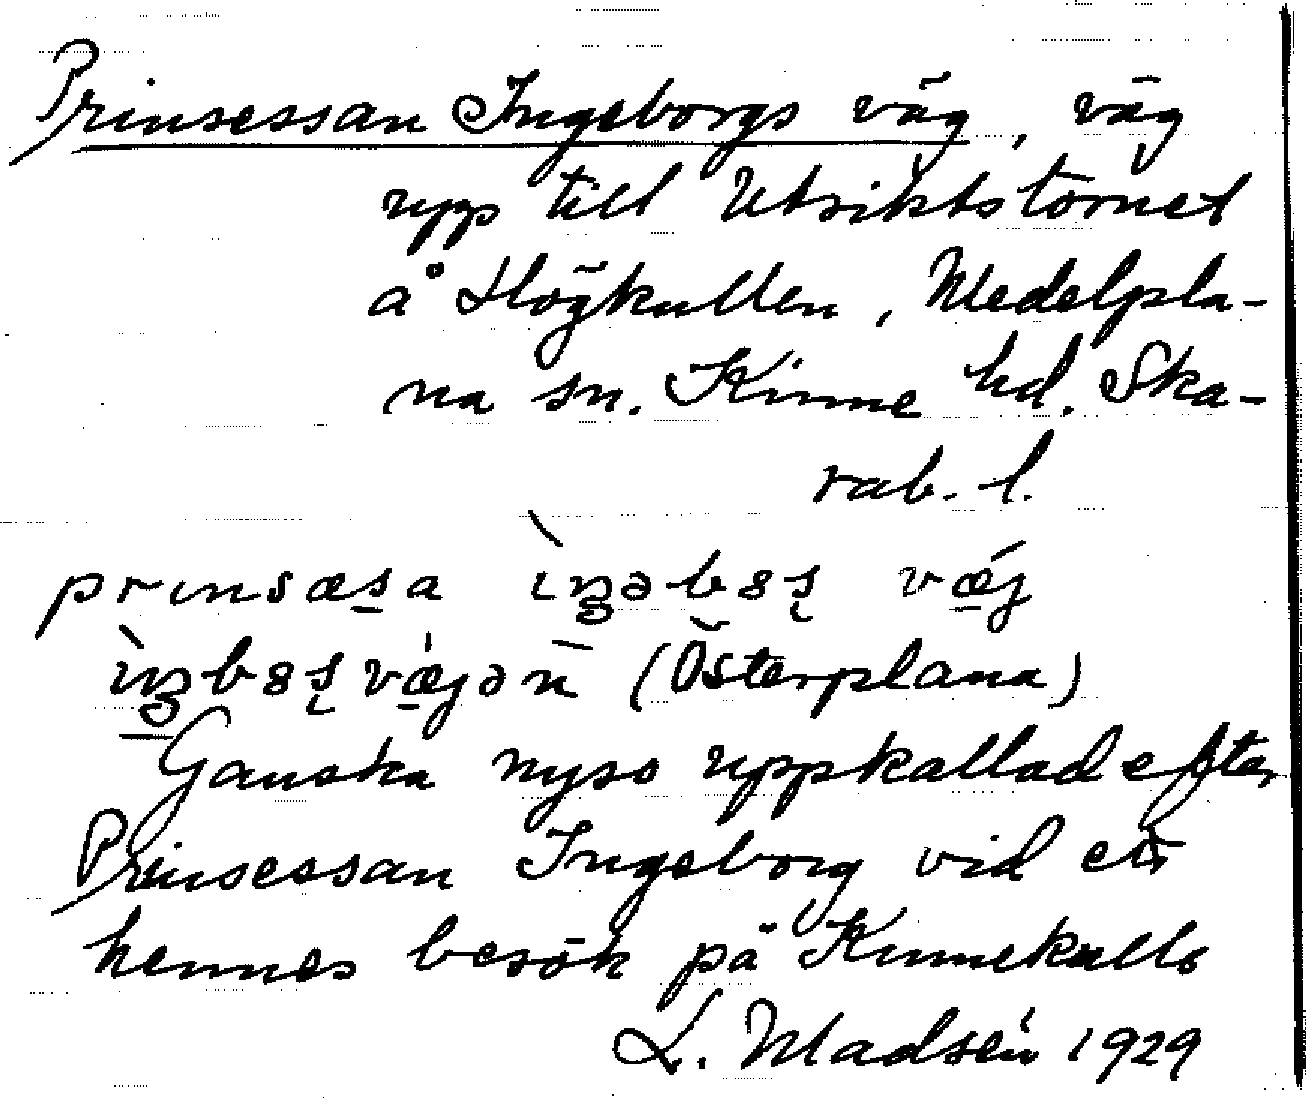 Prinsessan Ingeborgs väg, väg
upp till Utsiktstornet
å Högkullen, Medelpla-
na sn. Kinne hd. Ska-
rab. l.
prinsæsa ìŋəbɷʂ væ̀j
ìŋbɷʂvæ̀jən (Österplana)
Ganska nyss uppkallad efter
Prinsessan Ingeborg vid ett
hennes besök på Kinnekulle
L. Madsén 1929